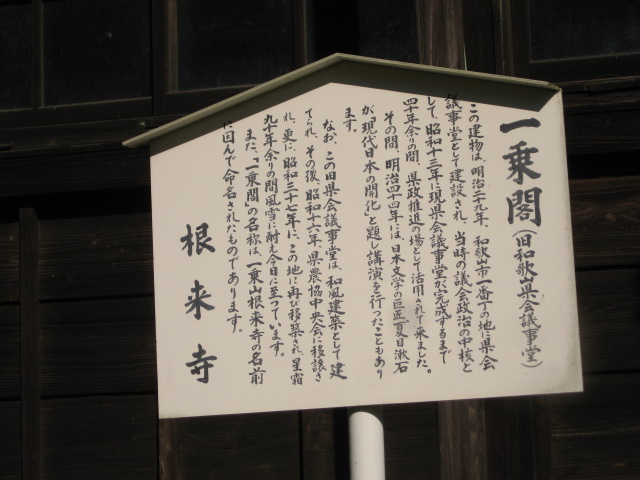 一乗閣(旧和歌山県会議事堂)
この建物は、明治二十九年、和歌山市一番丁の地に県会
議事堂として建設され、当時の議会政治の中核と
して、昭和十三年に現県会議事堂が完成するまで
四十年余りの間、県政推進の場として活用されて来ました。
その間、明治四十四年には、日本文学の巨匠「夏目漱石
が、「現代日本の開化」と題し講演を行ったこともあり
ます。
なお、この旧県会議事堂は、和風建築として建
てられ、その後、昭和十六年、県農協中央会に移譲さ
れ、更に、昭和三十七年に、この地に再び移築され、星霜
九十年余りの間風雪に耐え今日に至っています。
また、「一乗閣」の名称は、一乗山根来寺の名前
に因んで命名されたものであります。
根来寺